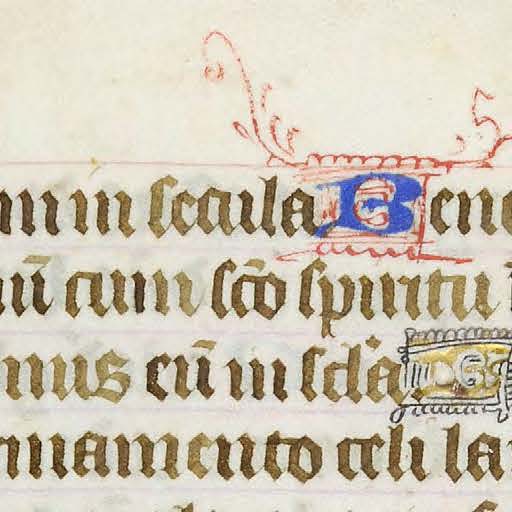 um in secula B ene
iū cum sc̄o spiritu
mus eū in sc̄la. B
rmamento celi lau